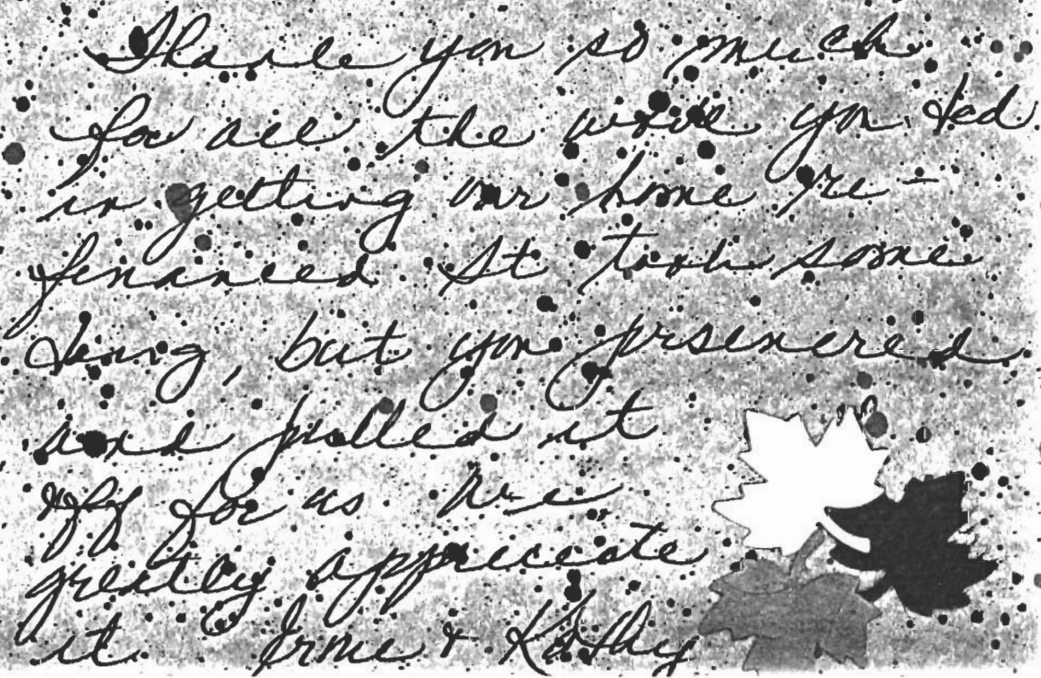 Thank you so much
for all the work you did
in getting our home re-
financed It took some
doing, but you persevered
and pulled it
off for us. We
greatly appreciate
it. & Kathy